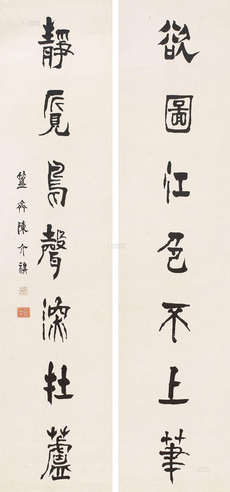 欲圖江色不上筆
靜覓鳥聲深在蘆
簠齋陳介祺